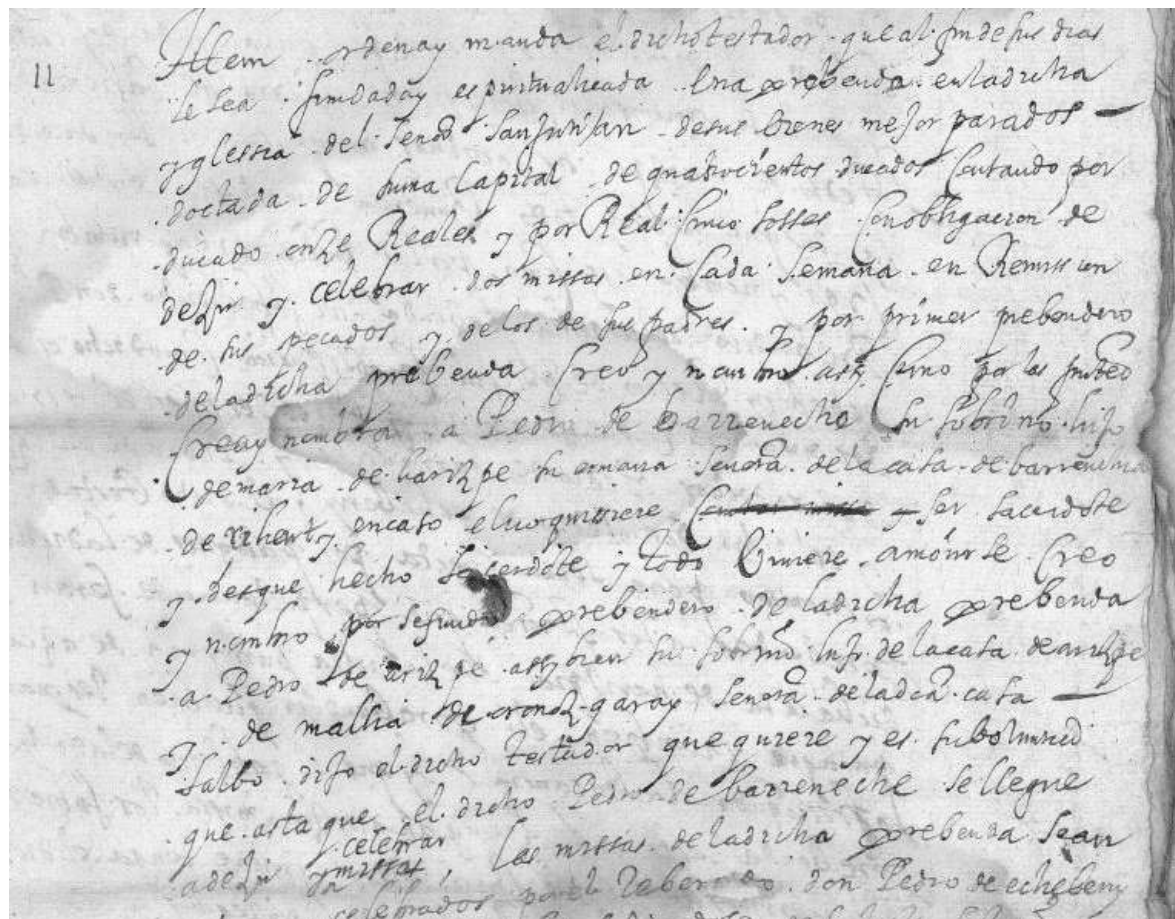 11
Ittem ordena y manda el dicho testador que al fin de sus dias
le sea fundada y espiritualicada Una prebenda en la dicha
yglessia del Señor San Julian de sus bienes mejor parados
doctada de suma Capital de quatrocientos ducados Contando por
ducado onze Reales y por Real Cinco tosses Con obligacion de
dezir y celebrar dos missas en Cada Semana en Remission
de sus pecados y de los de sus padres y por primer prebendero
de la dicha prebenda Creo y nombro asi Como por las
Crea y nombra a Pedro de barreneche su sobrino hijo
de maria de harizpe su ermana Señora de la casa de barreneche
de y en caso el no quissiere y ser sacerdote
y desque hecho sacerdote y todo Viniere a morirse Creo
y nombro por segundo prebendero de la dicha prebenda
a Pedro de arizpe assi bien su sobrino hijo de la casa de arizpe
y de de garay Señora de la dcha casa
Salbo dijo el dicho testador que quiere y es su boluntad
que asta que el dicho Pedro de barreneche se llegue
a dezir y celebrar missas, Las missas de la dicha prebenda sean
celebrados por el Reberendo don Pedro de